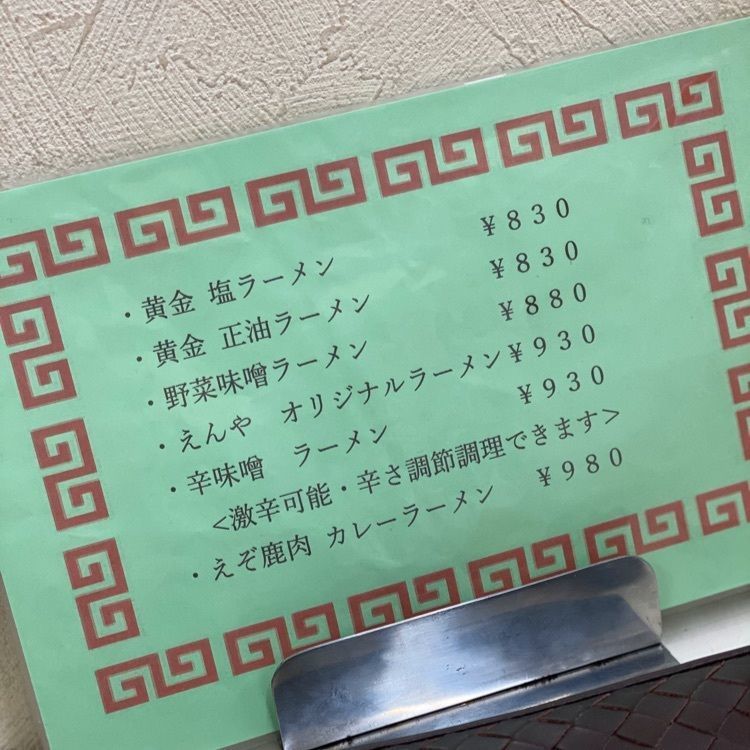 ・黄金 塩ラーメン ￥８３０
・黄金 正油ラーメン ￥８３０
・野菜味噌ラーメン ￥８８０
・えんや　オリジナルラーメン￥９３０
・辛味噌　ラーメン ￥９３０
<激辛可能・辛さ調節調理できます>
・えぞ鹿肉 カレーラーメン ￥９８０